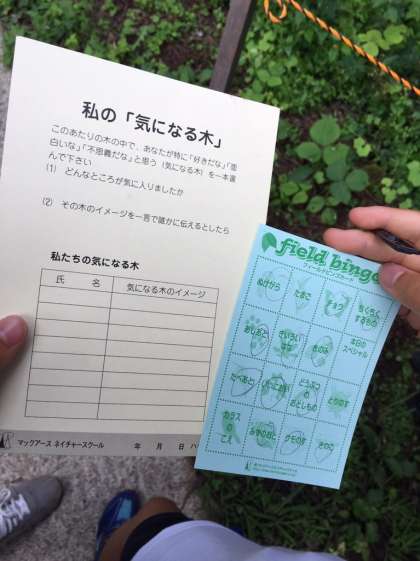 私の「気になる木」
このあたりの木の中で、あなたが特に「好きだな」「面
白いな」「不思議だな」と思う（気になる木）を一本選
んで下さい
(1) どんなところが気に入りましたか
(2) その木のイメージを一言で誰かに伝えるとしたら
私たちの気になる木
氏 名 気になる木のイメージ
マックアース ネイチャースクール 年 月 日
field bingo
フィールドビンゴ
ぬけがら たまご キノコ ちくちくするもの
きいろいはな きのみ 本日のスペシャル
たべあと どうぶつのおとしもの とりのす
カラスのこえ クモのす